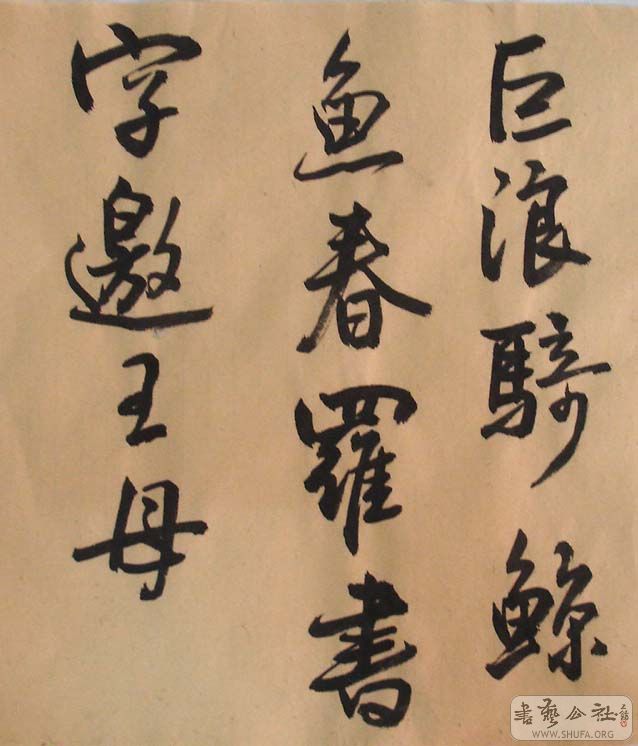 巨浪騎鯨
魚春羅書
字邀王母
書藝公社
WWW.SHUFA.ORG